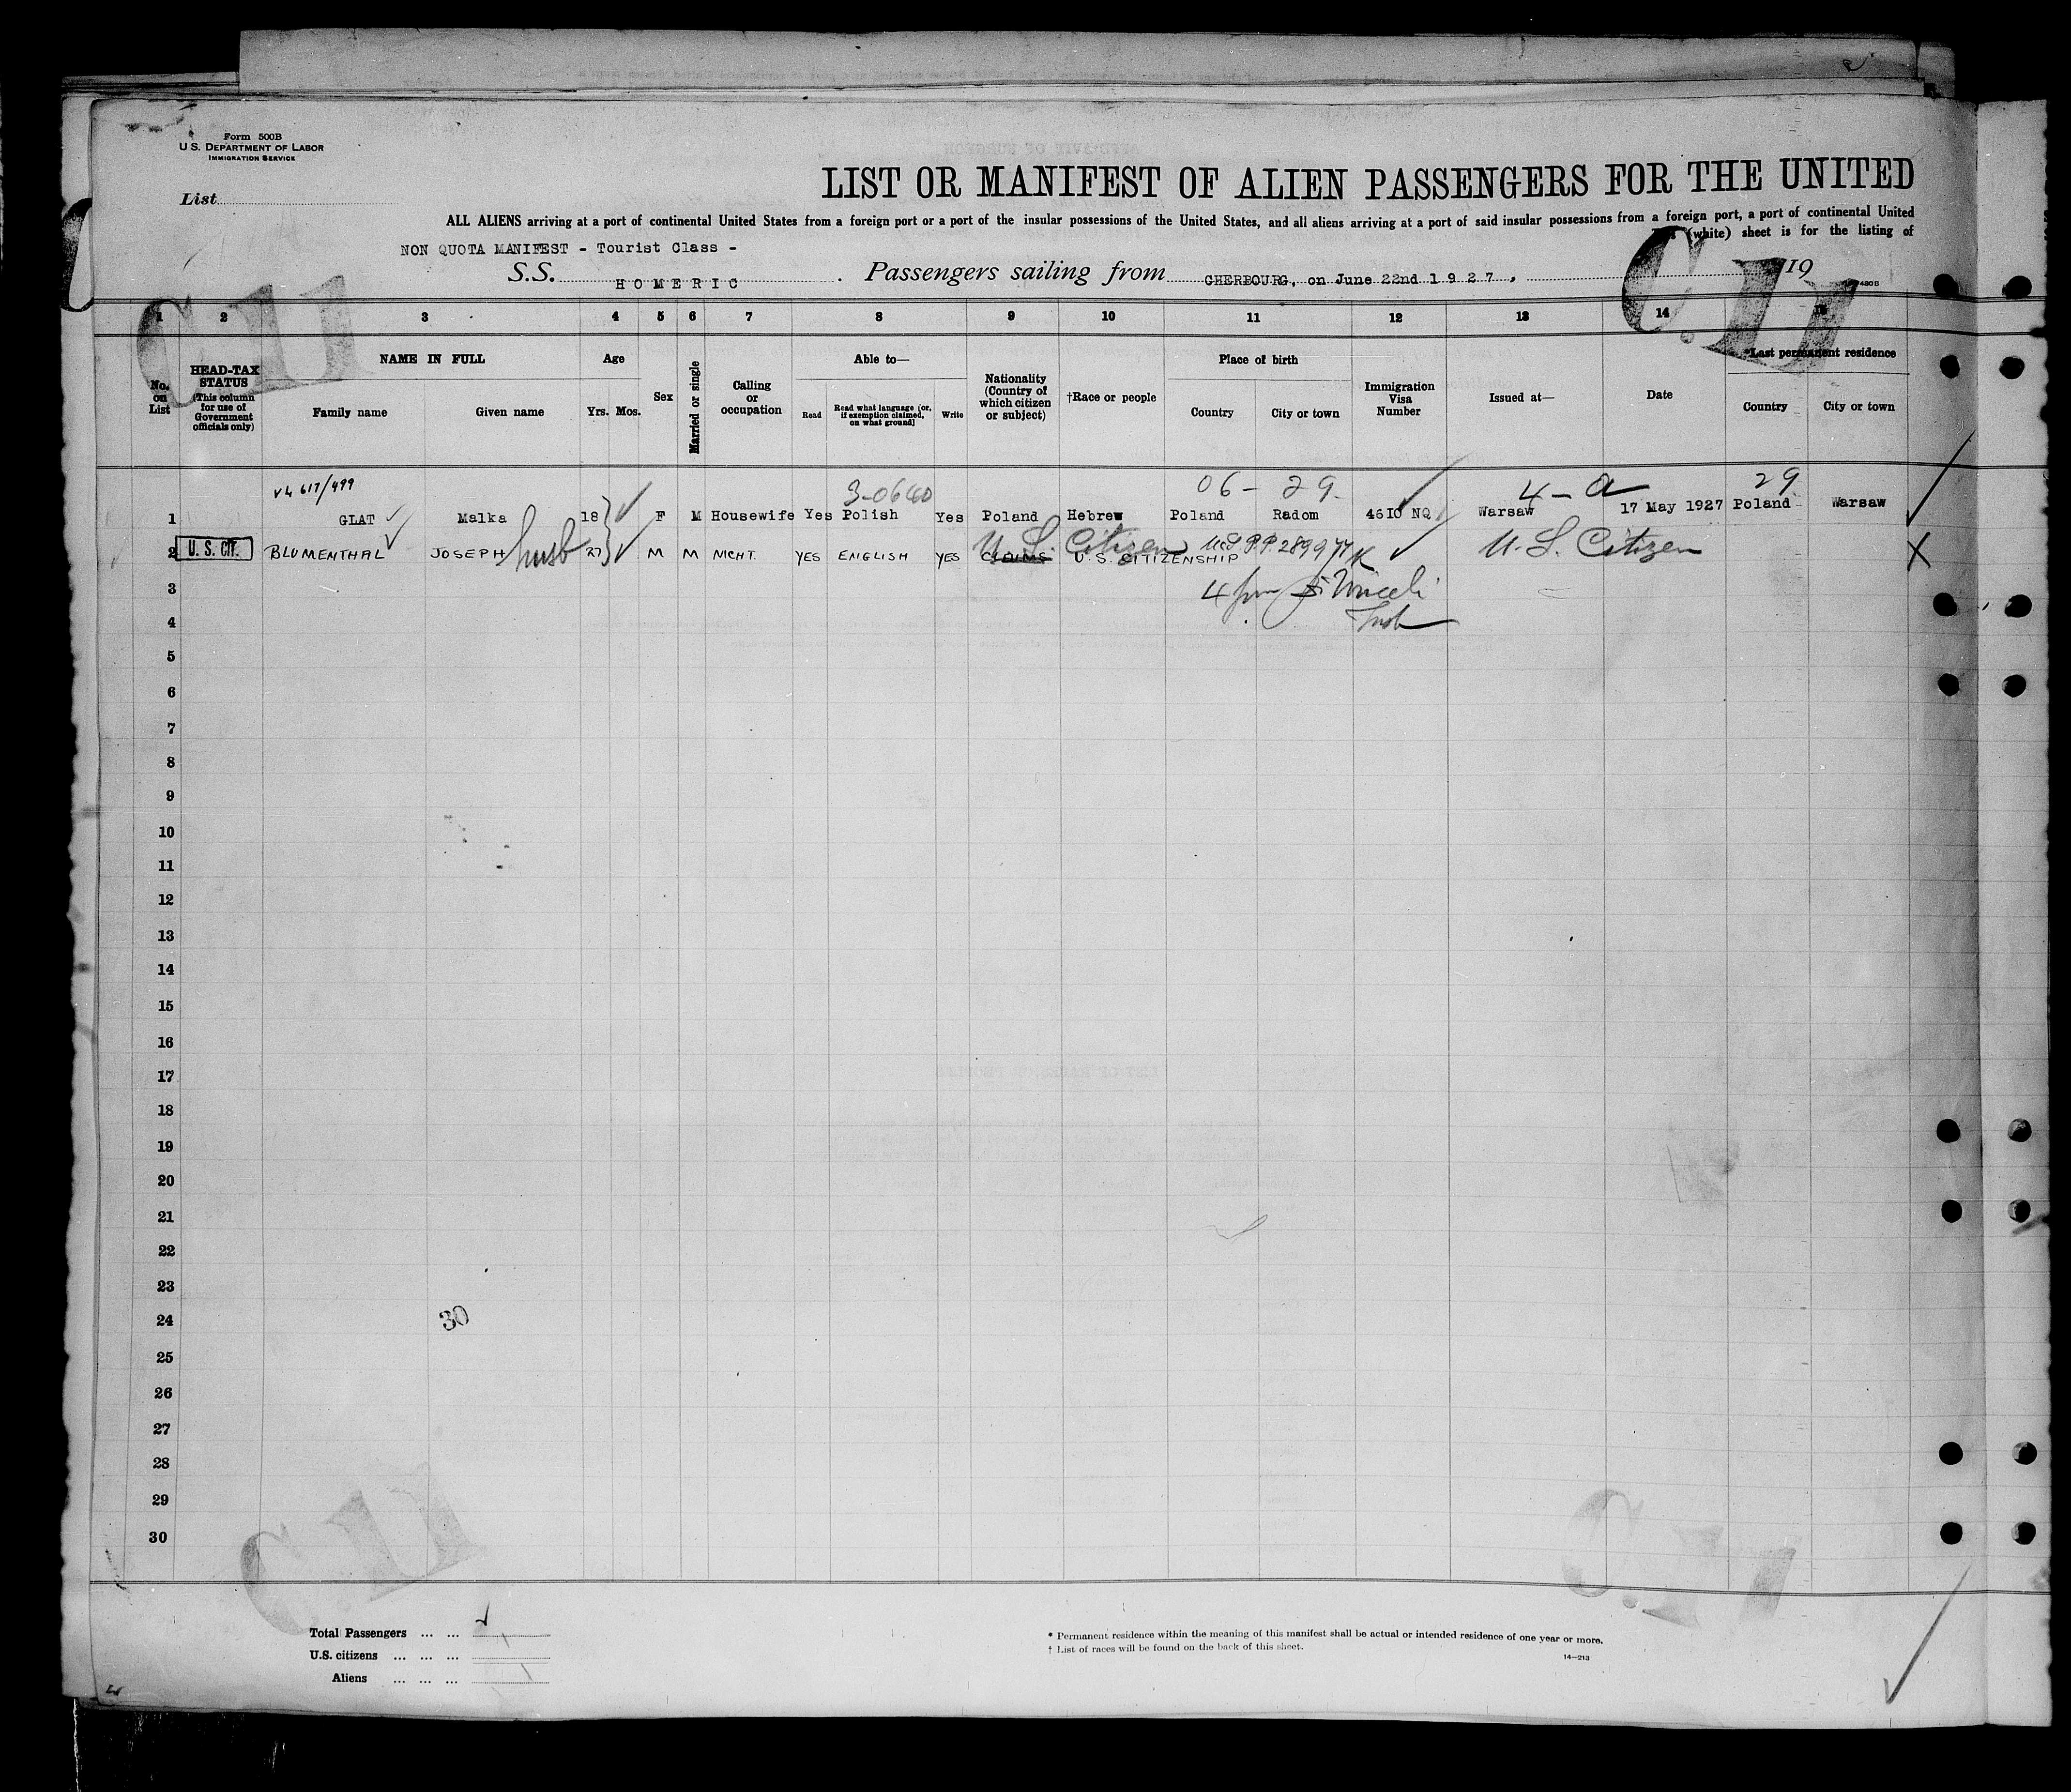 Form 500B
U. S. DEPARTMENT OF LABOR
IMMIGRATION SERVICE
List
LIST OR MANIFEST OF ALIEN PASSENGERS FOR THE UNITED
ALL ALIENS arriving at a port of continental United States from a foreign port or a port of the insular possessions of the United States, and all aliens arriving at a port of said insular possessions from a foreign port, a port of continental United
(white) sheet is for the listing of
NON QUOTA MANIFEST - Tourist Class -
S.S. HOMERIC. Passengers sailing from CHERBOURG, on June 22nd 1927, 19
1 2 3 4 5 6 7 8 9 10 11 12 13 14 15
No. on List
HEAD-TAX STATUS (This column for use of Government officials only)
NAME IN FULL
Family name Given name
Age
Yrs. Mos.
Sex
Married or single
Calling or occupation
Able to—
Read
Read what language (or, if exemption claimed, on what ground)
Write
Nationality (Country of which citizen or subject)
†Race or people
Place of birth
Country City or town
Immigration Visa Number
Issued at—
Date
*Last permanent residence
Country City or town
V4 617/499 3-0640 06- 29- 4-a 29
1 GLAT Malka 18 F M Housewife Yes Polish Yes Poland Hebrew Poland Radom 4610 NQ Warsaw 17 May 1927 Poland Warsaw
2 U. S. CIT. BLUMENTHAL JOSEPH husb 27 M M NIGHT. YES ENGLISH YES CLAIMS U.S. CITIZENSHIP U.S. Citizen U.S. P.P. 289977 U.S. Citizen
3
4
5
6
7
8
9
10
11
12
13
14
15
16
17
18
19
20
21
22
23
24 30
25
26
27
28
29
30
Total Passengers ... ...
U.S. citizens ... ... ...
Aliens ... ... ...
* Permanent residence within the meaning of this manifest shall be actual or intended residence of one year or more.
† List of races will be found on the back of this sheet.
14—213